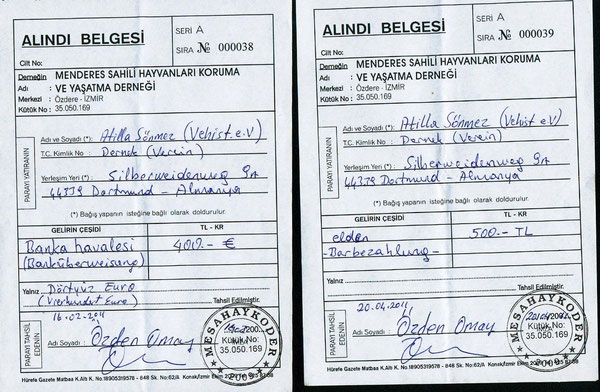 ALINDI BELGESİ
SERİ A
SIRA № 000038
Cilt No:
Derneğin MENDERES SAHİLİ HAYVANLARI KORUMA
Adı : VE YAŞATMA DERNEĞİ
Merkezi : Özdere - İZMİR
Kütük No : 35.050.169
PARAYI YATIRANIN
Adı ve Soyadı (*): Atilla Sönmez (Vehist e.V)
T.C. Kimlik No : Dernek (Verein)
Yerleşim Yeri (*) : Silberweidenweg 9A
44339 Dortmund - Almanya
(*) Bağış yapanın isteğine bağlı olarak doldurulur.
GELİRİN ÇEŞİDİ TL - KR
Banka havalesi 400.- €
(Banküberweisung)
Yalnız Dörtyüz Euro
(Vierhundert Euro) Tahsil Edilmiştir.
16.02.2011
PARAYI TAHSİL EDENİN
Adı Soyadı : Özden Omay
MESAHAYKODER
Kütük No:
35.050.169
2009
ALINDI BELGESİ
SERİ A
SIRA № 000039
Cilt No:
Derneğin MENDERES SAHİLİ HAYVANLARI KORUMA
Adı : VE YAŞATMA DERNEĞİ
Merkezi : Özdere - İZMİR
Kütük No : 35.050.169
PARAYI YATIRANIN
Adı ve Soyadı (*): Atilla Sönmez (Vehist e.V)
T.C. Kimlik No : Dernek (Verein)
Yerleşim Yeri (*) : Silberweidenweg 9A
44339 Dortmund - Almanya
(*) Bağış yapanın isteğine bağlı olarak doldurulur.
GELİRİN ÇEŞİDİ TL - KR
elden 500.- TL
-Barbezahlung-
Yalnız Tahsil Edilmiştir.
20.04.2011
PARAYI TAHSİL EDENİN
Adı Soyadı : Özden Omay
MESAHAYKODER
Kütük No:
35.050.169
2009